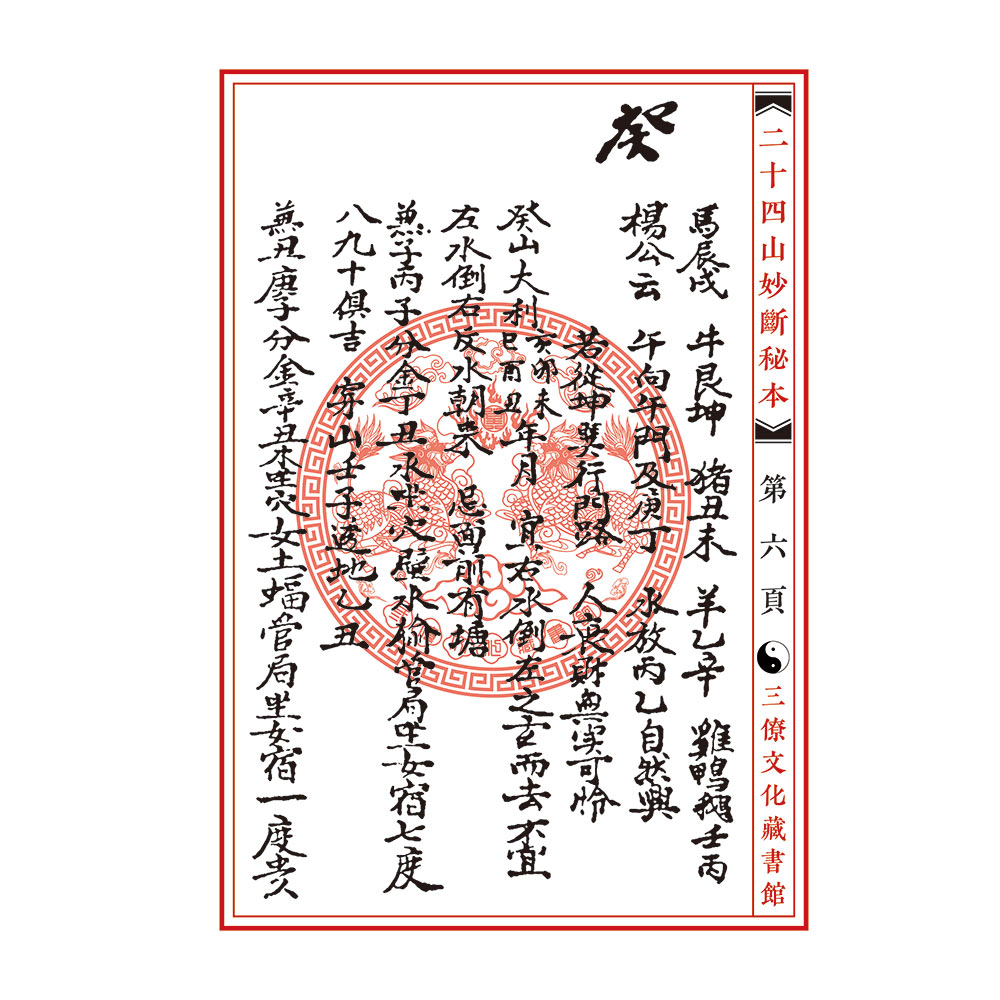 二十四山妙斷秘本
第六頁
三僚文化藏書館
癸
馬辰戌 牛艮坤 猪丑未 羊乙辛 雞鴨鵝壬丙
楊公云 午向午門及庚丁 水放丙乙自然興
若從坤巽行門路 人喪財與实可怜
癸山大利亥卯未巳酉丑年月 宜右水倒左之玄而去 不宜
左水倒右反水朝来 忌面前有塘
兼子丙子分金丁丑水坐穴壁水㺄管局坐女宿七度
八九十俱吉 穿山壬子透地乙丑
兼丑庚子分金辛丑木坐穴女土蝠管局坐女宿一度貴